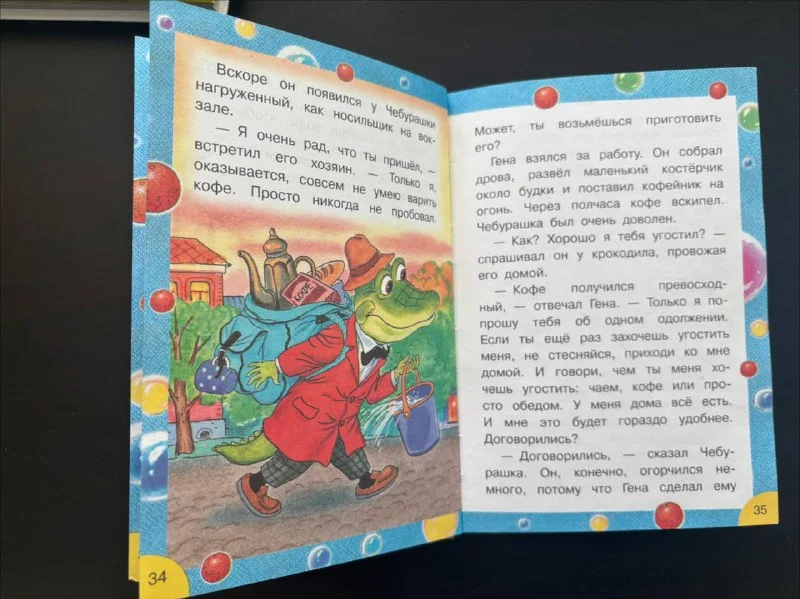 Вскоре он появился у Чебурашки
нагруженный, как носильщик на вок-
зале.
— Я очень рад, что ты пришёл, —
встретил его хозяин. — Только я,
оказывается, совсем не умею варить
кофе. Просто никогда не пробовал.
КОФЕ
34
Может, ты возьмёшься приготовить
его?
Гена взялся за работу. Он собрал
дрова, развёл маленький костёрчик
около будки и поставил кофейник на
огонь. Через полчаса кофе вскипел.
Чебурашка был очень доволен.
— Как? Хорошо я тебя угостил? —
спрашивал он у крокодила, провожая
его домой.
— Кофе получился превосход-
ный, — отвечал Гена. — Только я по-
прошу тебя об одном одолжении.
Если ты ещё раз захочешь угостить
меня, не стесняйся, приходи ко мне
домой. И говори, чем ты меня хо-
чешь угостить: чаем, кофе или про-
сто обедом. У меня дома всё есть.
И мне это будет гораздо удобнее.
Договорились?
— Договорились, — сказал Чебу-
рашка. Он, конечно, огорчился не-
много, потому что Гена сделал ему
35